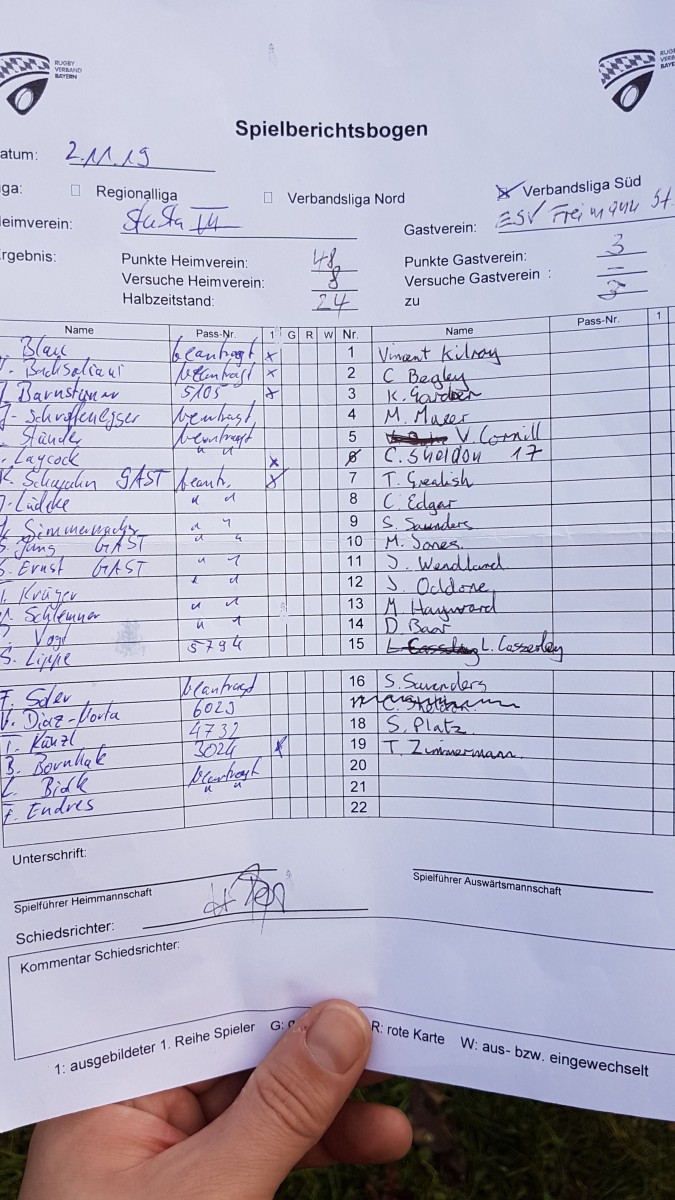 RUGBY
VERBAND
BAYERN
RUG
VERB
BAYE
Spielberichtsbogen
atum: 2.11.19
ga: Regionalliga Verbandsliga Nord Verbandsliga Süd
eimverein: StuSta III Gastverein: ESV Freimann St.
rgebnis: Punkte Heimverein: 48 Punkte Gastverein: 3
Versuche Heimverein: 8 Versuche Gastverein : –
Halbzeitstand: 24 zu 3
Name Pass-Nr. 1 G R W Nr. Name Pass-Nr. 1
beantragt x 1 Vincent Kilroy
beantragt x 2 C Begley
Barnstorner 5105 x 3 K. Gardner
beantragt 4 M. Maier
Stander beantragt 5 V. Cornill
Laycock " " x 6 C. Sheldon 17
GAST beantr. x 7 T. Grealish
Lüdeke " " 8 C. Edgar
" " 9 S. Saunders
Jung GAST " " 10 M. Jones
. Ernst GAST " " 11 J. Wendland
Krüger " " 12 J. Oddone
Schlemmer " " 13 M. Hayward
Vogt " " 14 D. Baar
S. Lippe 5794 15 L. Casserley
F. beantragt 16 S. Saunders
Diaz-Horta 6023 C. Sheldon
Känzl 4732 18 S. Platz
B. Bornhak 3024 x 19 T. Zimmermann
beantragt 20
F. Endres " " 21
22
Unterschrift:
Spielführer Heimmannschaft Spielführer Auswärtsmannschaft
Schiedsrichter:
Kommentar Schiedsrichter:
1: ausgebildeter 1. Reihe Spieler G: R: rote Karte W: aus- bzw. eingewechselt